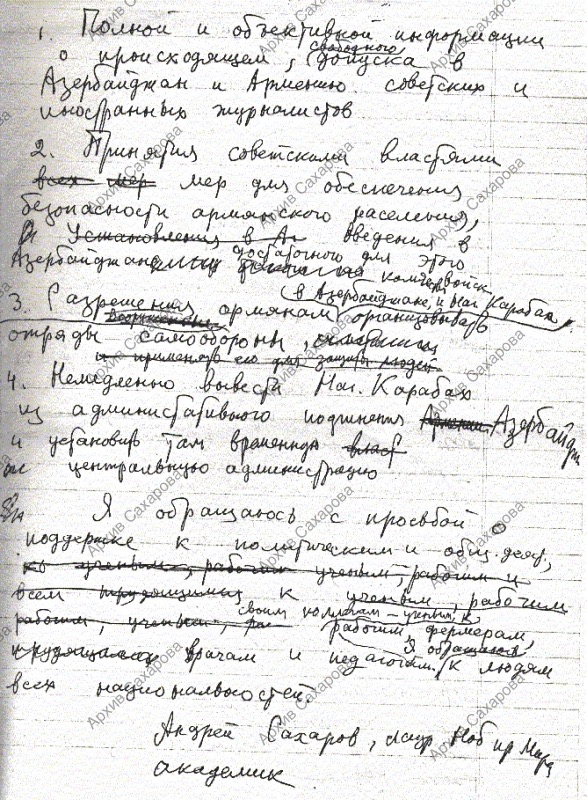 1. Полной и объективной информации
о происходящем, свободного допуска в
Азербайджан и Армению советских и
иностранных журналистов
2. Принятия советскими властями
всех мер мер для обеспечения
безопасности армянского населения,
Установления в введения в
Азербайджан достаточного для этого
войск
3. Разрешения армянам в Азербайджане, и Наг. Карабах организовывать
вооруженные
отряды самообороны,
и применять его для защиты людей
4. Немедленно вывести Наг. Карабах
из административного подчинения Армении Азербайдж
и установив там временную власт
центральную администрацию
Я обращаюсь с просьбой о
поддержке к политическим и общ. деят,
ко ученым, рабочим ученым, рабочим и
всем трудящимся к ученым, рабочим
рабочим, ученым, своим коллегам – ученым, к
рабочим, фермерам,
трудящимся врачам и педагогам. Я обращаюсь к людям
всех национальностей.
Андрей Сахаров, лаур Ноб пр Мира
академик
Архив Сахарова
Архив Сахарова
Архив Сахарова
Архив Сахарова
Архив Сахарова
Архив Сахарова
Архив Сахарова
Архив Сахарова